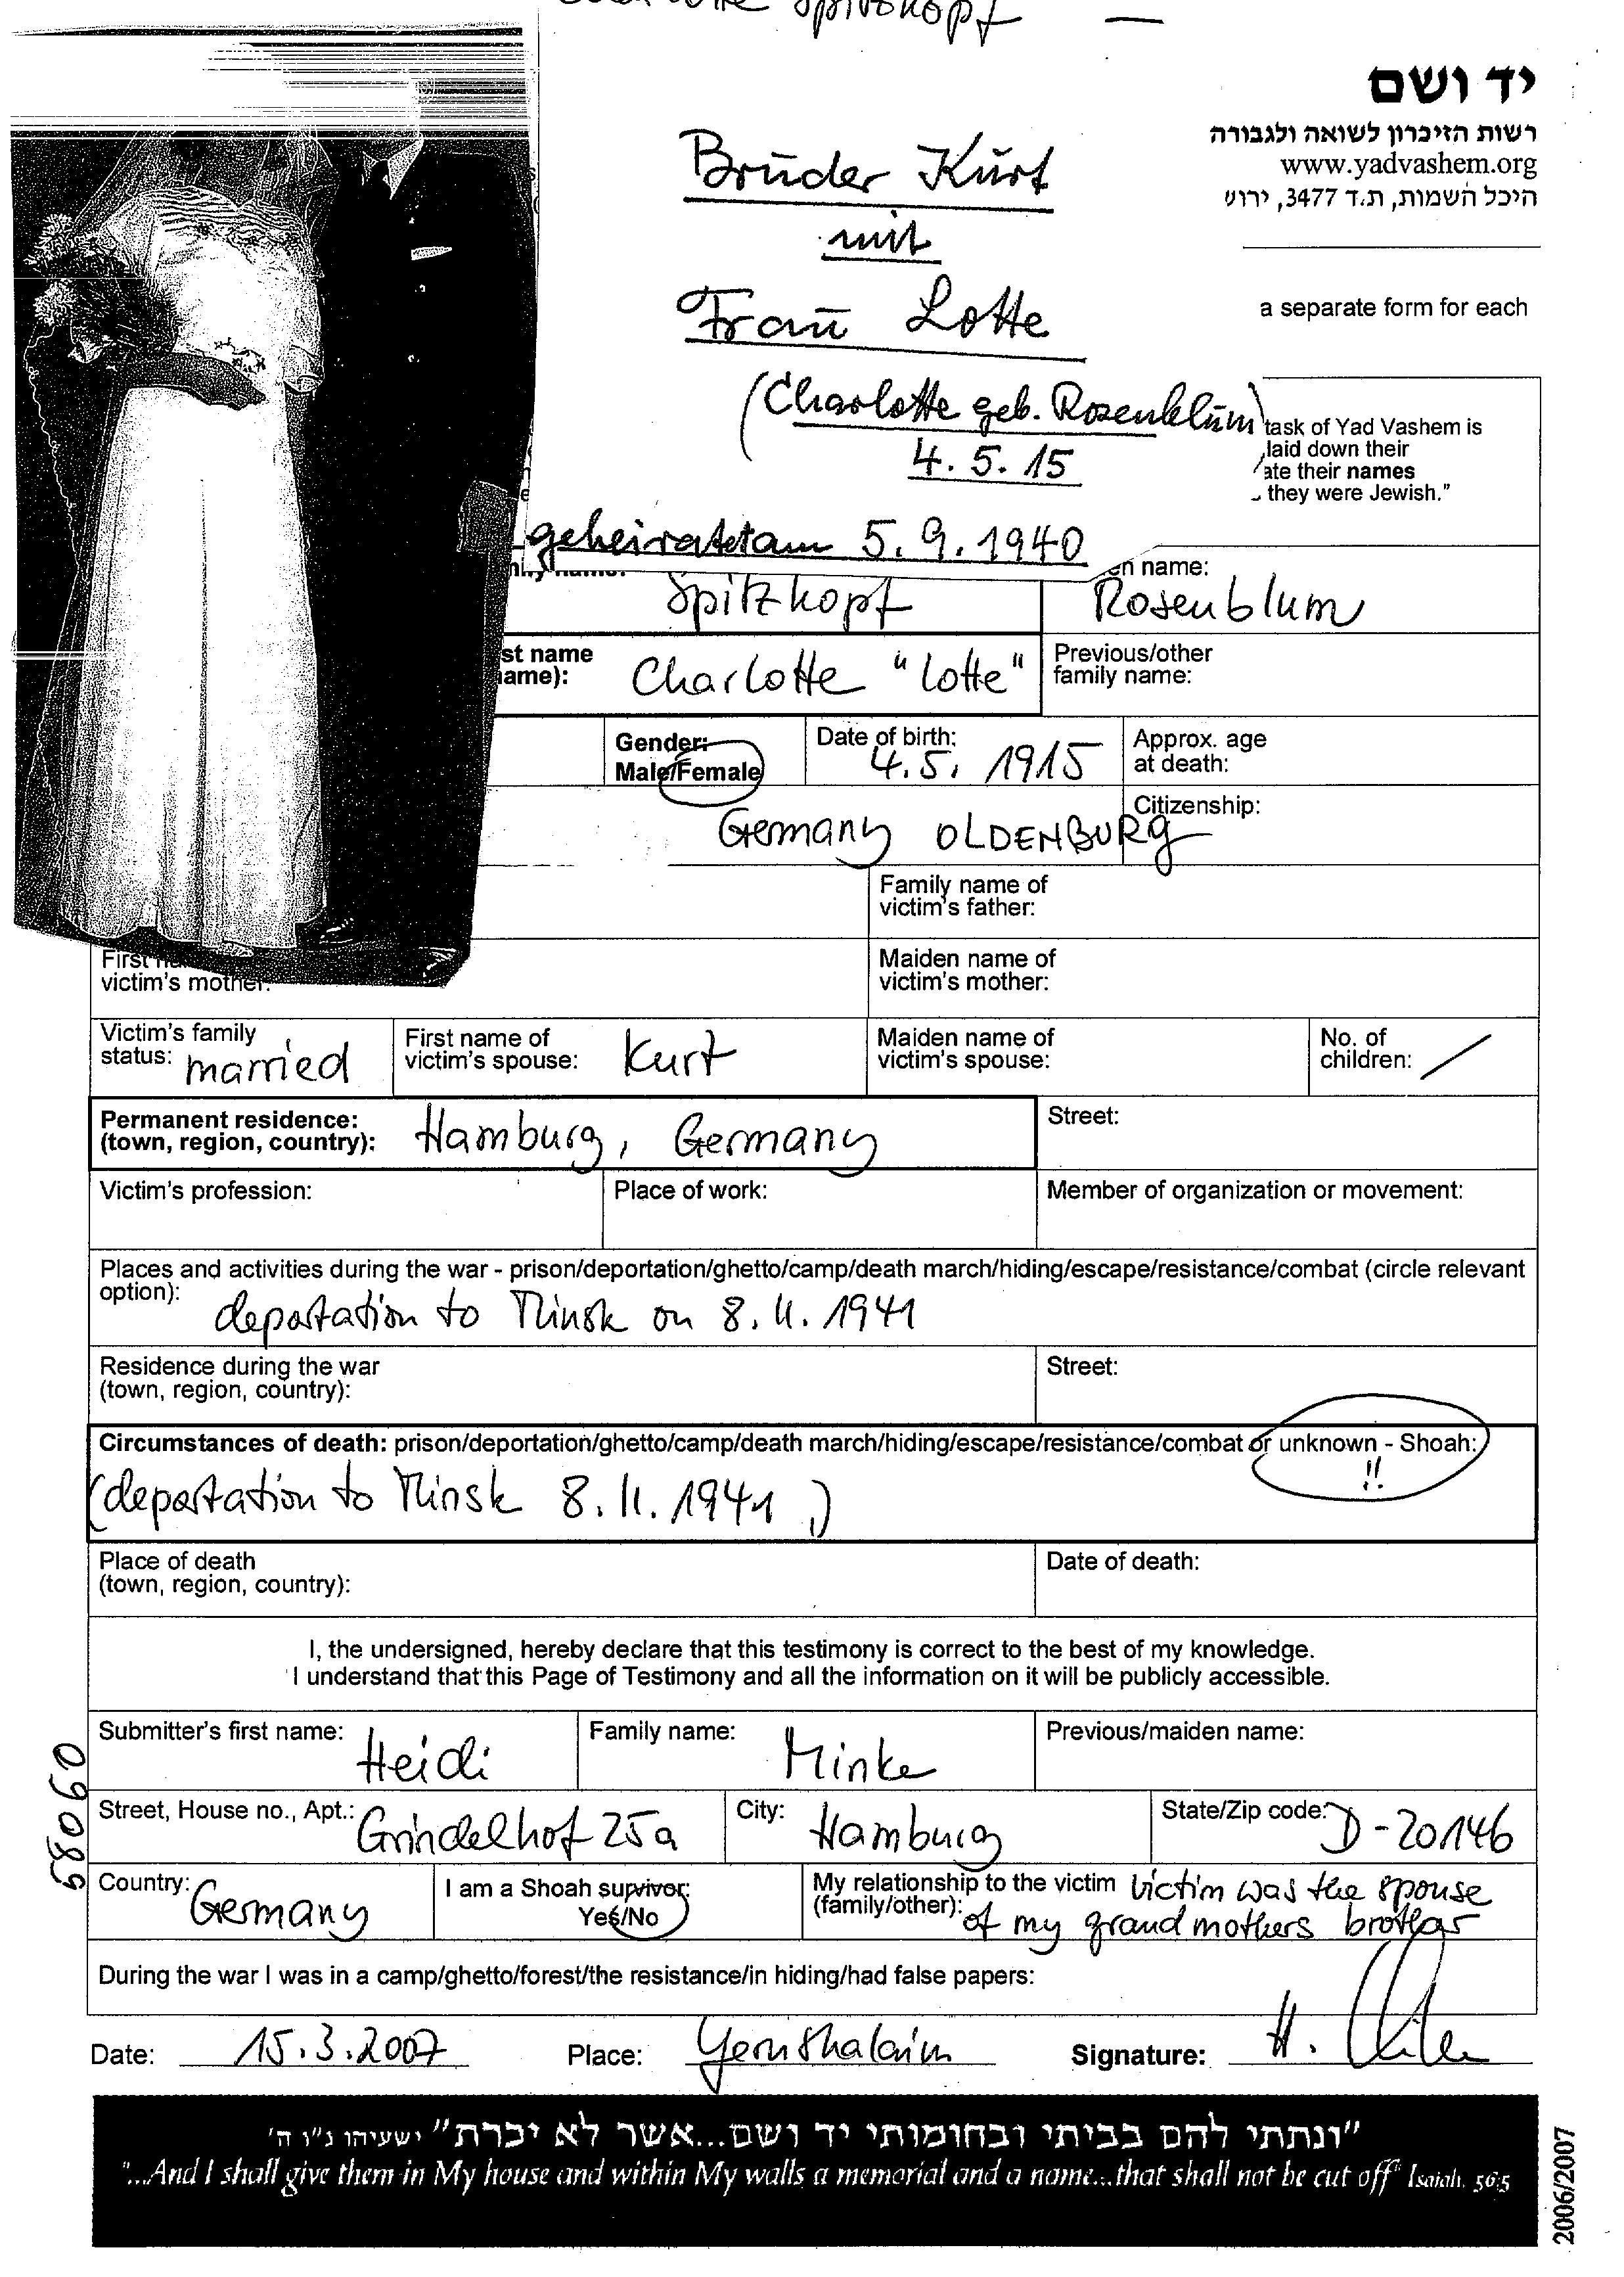 Spitzkopf —
יד ושם
רשות הזיכרון לשואה ולגבורה
www.yadvashem.org
היכל השמות, ת.ד 3477, ירוש
Bruder Kurt
mit
Frau Lotte
(Charlotte geb. Rosenblum)
4.5.15
geheiratet am 5.9.1940
a separate form for each
task of Yad Vashem is
laid down their
ate their names
they were Jewish."
Spitzkopf
en name:
Rosenblum
st name
ame): Charlotte "Lotte"
Previous/other
family name:
Gender:
Male/Female
Date of birth:
4.5.1915
Approx. age
at death:
Germany OLDENBURG
Citizenship:
Family name of
victim's father:
First
victim's mother:
Maiden name of
victim's mother:
Victim's family
status: married
First name of
victim's spouse: Kurt
Maiden name of
victim's spouse:
No. of
children: /
Permanent residence:
(town, region, country): Hamburg, Germany
Street:
Victim's profession:
Place of work:
Member of organization or movement:
Places and activities during the war - prison/deportation/ghetto/camp/death march/hiding/escape/resistance/combat (circle relevant
option):
deportation to Minsk on 8.11.1941
Residence during the war
(town, region, country):
Street:
Circumstances of death: prison/deportation/ghetto/camp/death march/hiding/escape/resistance/combat or unknown - Shoah:
!!
(deportation to Minsk 8.11.1941,)
Place of death
(town, region, country):
Date of death:
I, the undersigned, hereby declare that this testimony is correct to the best of my knowledge.
I understand that this Page of Testimony and all the information on it will be publicly accessible.
Submitter's first name: Heidi
Family name: Minke
Previous/maiden name:
Street, House no., Apt.: Grindelhof 25a
City: Hamburg
State/Zip code: D-20146
Country: Germany
I am a Shoah survivor:
Yes/No
My relationship to the victim victim was the spouse
(family/other): of my grandmothers brother
During the war I was in a camp/ghetto/forest/the resistance/in hiding/had false papers:
Date: 15.3.2007
Place: Yerushalaim
Signature: H.
"ונתתי להם בביתי ובחומותי יד ושם...אשר לא יכרת" ישעיהו נ"ו ה'
"...And I shall give them in My house and within My walls a memorial and a name...that shall not be cut off" Isaiah. 56:5
2006/2007